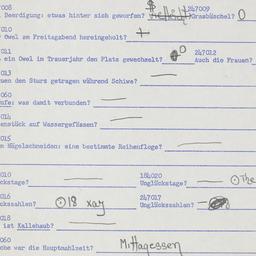 008 247009
Beerdigung: etwas hinter sich geworfen? Vielleicht Grasbüschel? 0
010
Owel am Freitagabend hereingeholt? +
011 247012
ein Owel im Trauerjahr den Platz gewechselt? 0 Auch die Frauen?
013
uen den Sturz getragen während Schiwe? —
060
ufe: was damit verbunden? —
014
enstück auf Wassergefässen? —
015
n Nägelschneiden: eine bestimmte Reihenfloge? —
010 184020
ckstage? — Unglückstage? — ⊙ The
016 247017
ckszahlen? ⊙ 18 xay Unglückszahlen? —
018
ist Kallehaub? —
060
che war die Hauptmahlzeit? Mittagessen